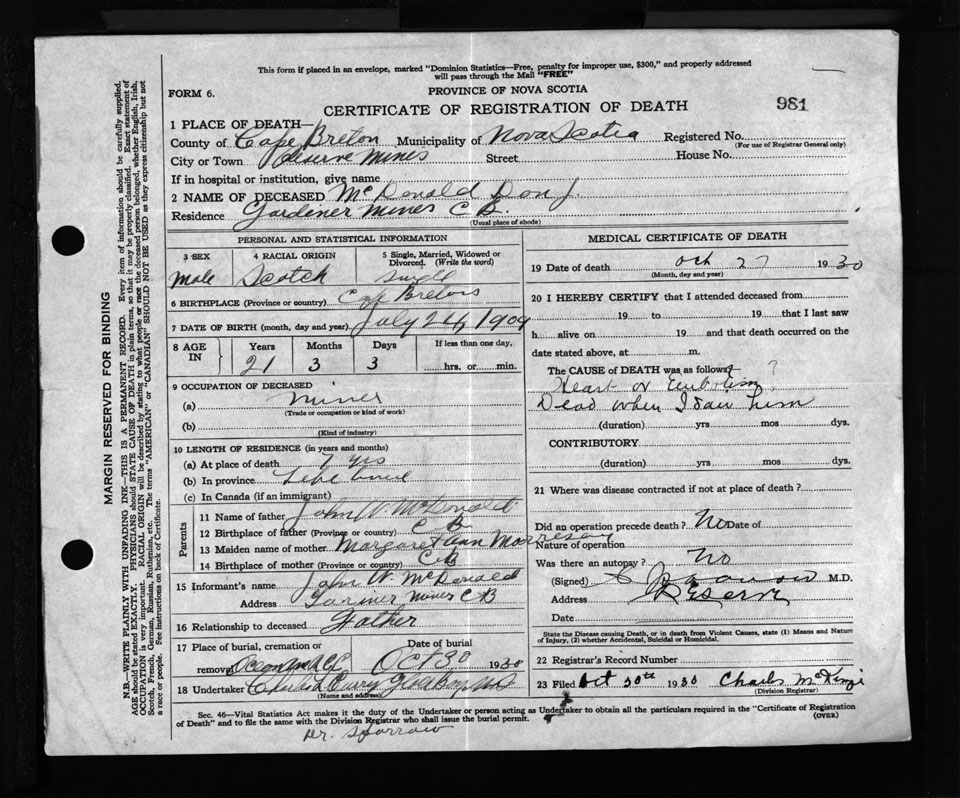 This form if placed in an envelope, marked "Dominion Statistics—Free, penalty for improper use, $300," and properly addressed
will pass through the Mail "FREE"
FORM 6.
PROVINCE OF NOVA SCOTIA
CERTIFICATE OF REGISTRATION OF DEATH
981
1 PLACE OF DEATH—
County of Cape Breton Municipality of Nova Scotia Registered No.
(For use of Registrar General only)
City or Town Reserve Mines Street House No.
If in hospital or institution, give name
2 NAME OF DECEASED McDonald Don J.
Residence Gardiner Mines C B.
(Usual place of abode)
PERSONAL AND STATISTICAL INFORMATION
3 SEX 4 RACIAL ORIGIN 5 Single, Married, Widowed or Divorced. (Write the word)
Male Scotch Single
6 BIRTHPLACE (Province or country) Cape Breton
7 DATE OF BIRTH (month, day and year) July 24, 1909
8 AGE IN Years Months Days If less than one day,
21 3 3 hrs. or min.
9 OCCUPATION OF DECEASED
(a) Miner
(Trade or occupation or kind of work)
(b)
(Kind of industry)
10 LENGTH OF RESIDENCE (in years and months)
(a) At place of death 7 yrs
(b) In province Life time
(c) In Canada (if an immigrant)
Parents
11 Name of father John W. McDonald
12 Birthplace of father (Province or country) C B
13 Maiden name of mother Margaret Ann
14 Birthplace of mother (Province or country) C B
15 Informant's name John W McDonald
Address Mines C B
16 Relationship to deceased Father
17 Place of burial, cremation or removal Date of burial
Oct 30 1930
18 Undertaker Curry Glace Bay
(Name and address)
MEDICAL CERTIFICATE OF DEATH
19 Date of death Oct 27 1930
(Month, day and year)
20 I HEREBY CERTIFY that I attended deceased from
19 to 19 that I last saw
h alive on 19 and that death occurred on
date stated above, at m.
The CAUSE of DEATH was as follows:
Heart or Embolism ?
Dead when I saw him
(duration) yrs mos dys.
CONTRIBUTORY
(duration) yrs mos dys.
21 Where was disease contracted if not at place of death?
Did an operation precede death? No Date of
Nature of operation
Was there an autopsy? No
(Signed) M.D.
Address Reserve
Date
State the Disease causing Death, or in death from Violent Causes, state (1) Means and Nature of Injury, (2) whether Accidental, Suicidal or Homicidal.
22 Registrar's Record Number
23 Filed Oct 30th 1930 Charles McKenzie
(Division Registrar)
Sec. 46—Vital Statistics Act makes it the duty of the Undertaker or person acting as Undertaker to obtain all the particulars required in the "Certificate of Registration
of Death" and to file the same with the Division Registrar who shall issue the burial permit.
(OVER)
Dr. Sparrow
MARGIN RESERVED FOR BINDING
N.B.—WRITE PLAINLY WITH UNFADING INK—THIS IS A PERMANENT RECORD. Every item of information should be carefully supplied.
AGE should be stated EXACTLY. PHYSICIANS should STATE CAUSE OF DEATH in plain terms, so that it may be properly classified. Exact statement of
OCCUPATION is very important. RACIAL ORIGIN will be described by stating to what people or race the deceased person belonged, whether English, Irish,
Scotch, French, German, Russian, Ruthenian, etc. The terms "AMERICAN" or "CANADIAN" SHOULD NOT BE USED as they express citizenship but not
a race or people. See instructions on back of Certificate.